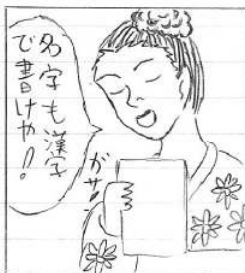 名字も漢字
で書けや!
ガサッ